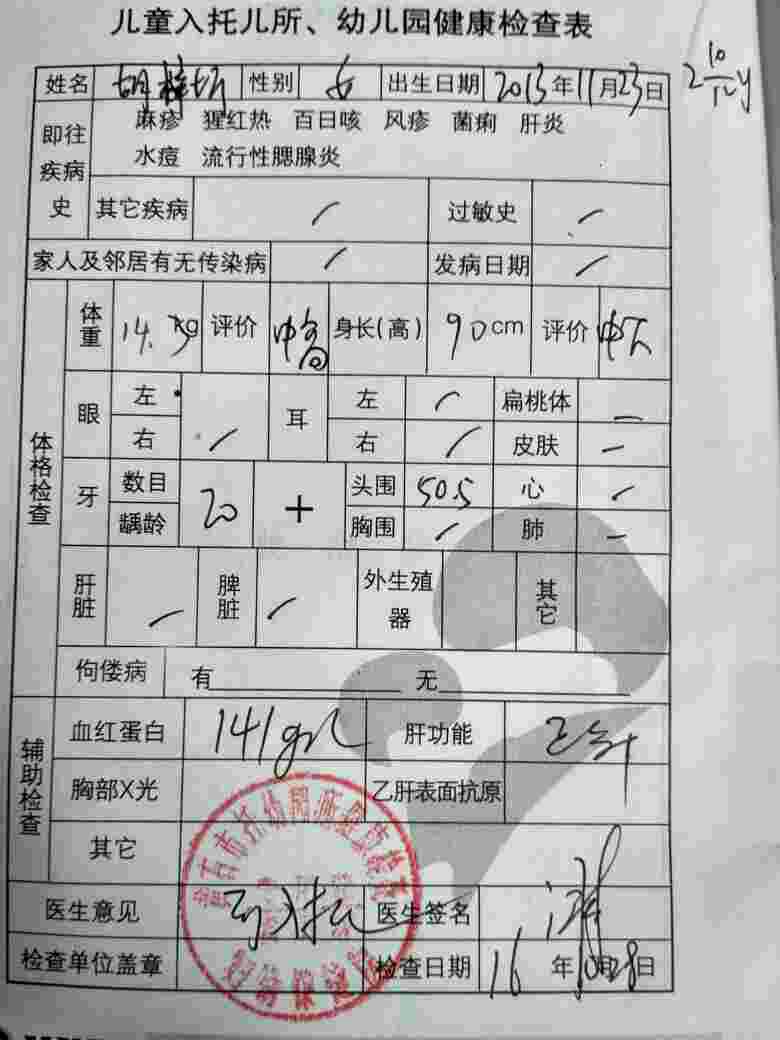 儿童入托儿所、幼儿园健康检查表
姓名 胡梓圻 性别 女 出生日期 2013年11月23日 2 10/12y
即往疾病史 麻疹 猩红热 百日咳 风疹 菌痢 肝炎
水痘 流行性腮腺炎
其它疾病 / 过敏史 /
家人及邻居有无传染病 / 发病日期 /
体格检查
体重 14.5kg 评价 中高 身长(高) 90cm 评价 中下
眼 左 耳 左 / 扁桃体 —
右 / 右 / 皮肤 —
牙 数目 20 + 头围 50.5 心 /
龋龄 胸围 / 肺 —
肝脏 / 脾脏 / 外生殖器 其它
佝偻病 有 无
辅助检查
血红蛋白 141g/L 肝功能 正常
胸部X光 乙肝表面抗原
其它
医生意见 可入托 医生签名
检查单位盖章 检查日期 16年10月28日